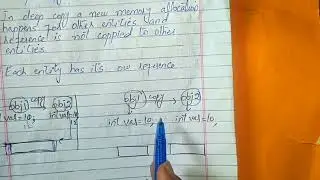 In deep copy a new memory allocation
happens for other entities and
reference is not coppied to other
entities.
Each entity has it's own reference
obj1 copy obj2
obj1 copy → obj2
int var = 10, int var = 10,